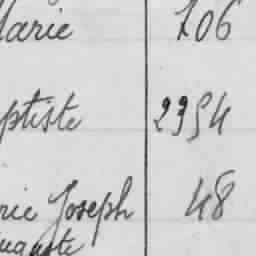 Marie 706
ptiste 2394
rie Joseph 48
uguste